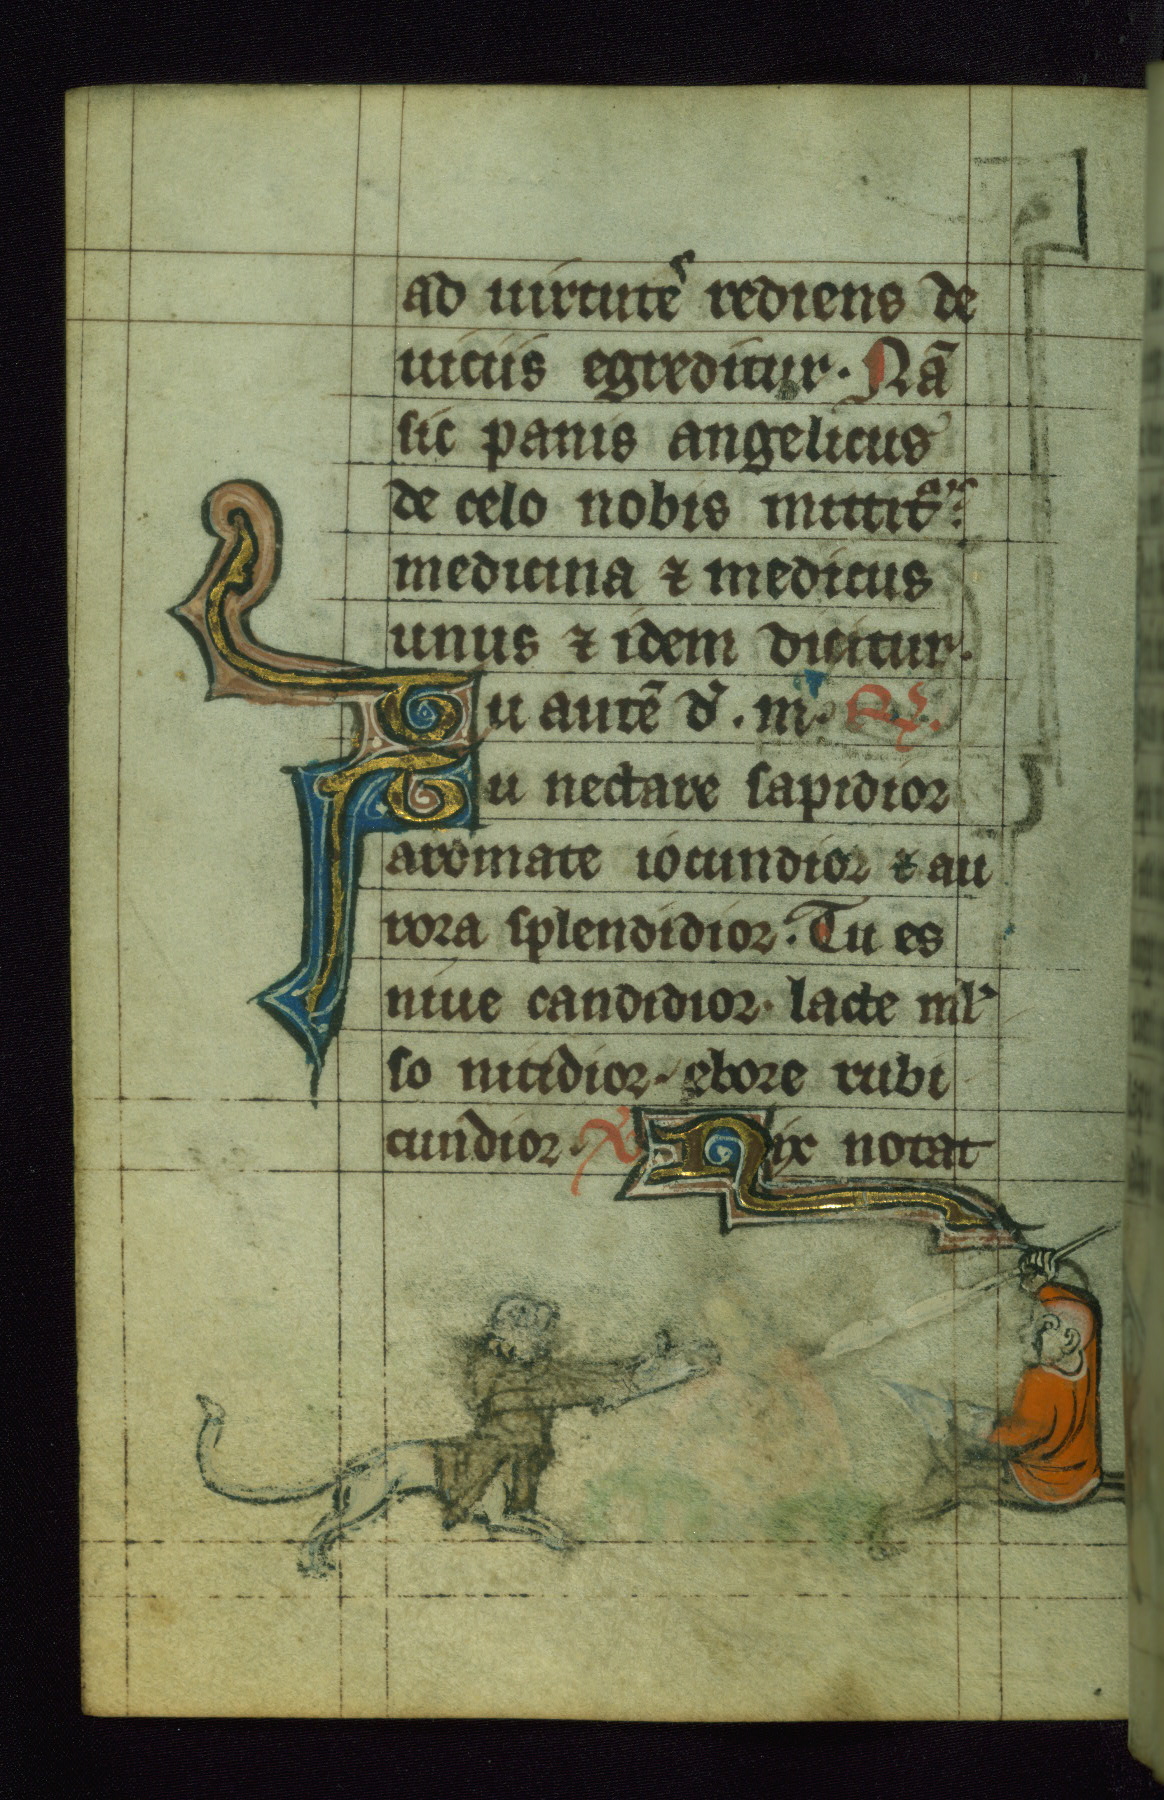 ad uirtutē rediens de
uiciis egreditur. Nā
sic panis angelicus
de celo nobis mittit᷑.
medicina ⁊ medicus
unus ⁊ idem dicitur.
Tu autē d̄. m̄. R̷.
Tu nectare sapidior
aromate iocundior ⁊ au
rora splendidior. Tu es
niue candidior. lacte ml̓
so nitidior. ebore rubi
cundior. V̷ Nix notat